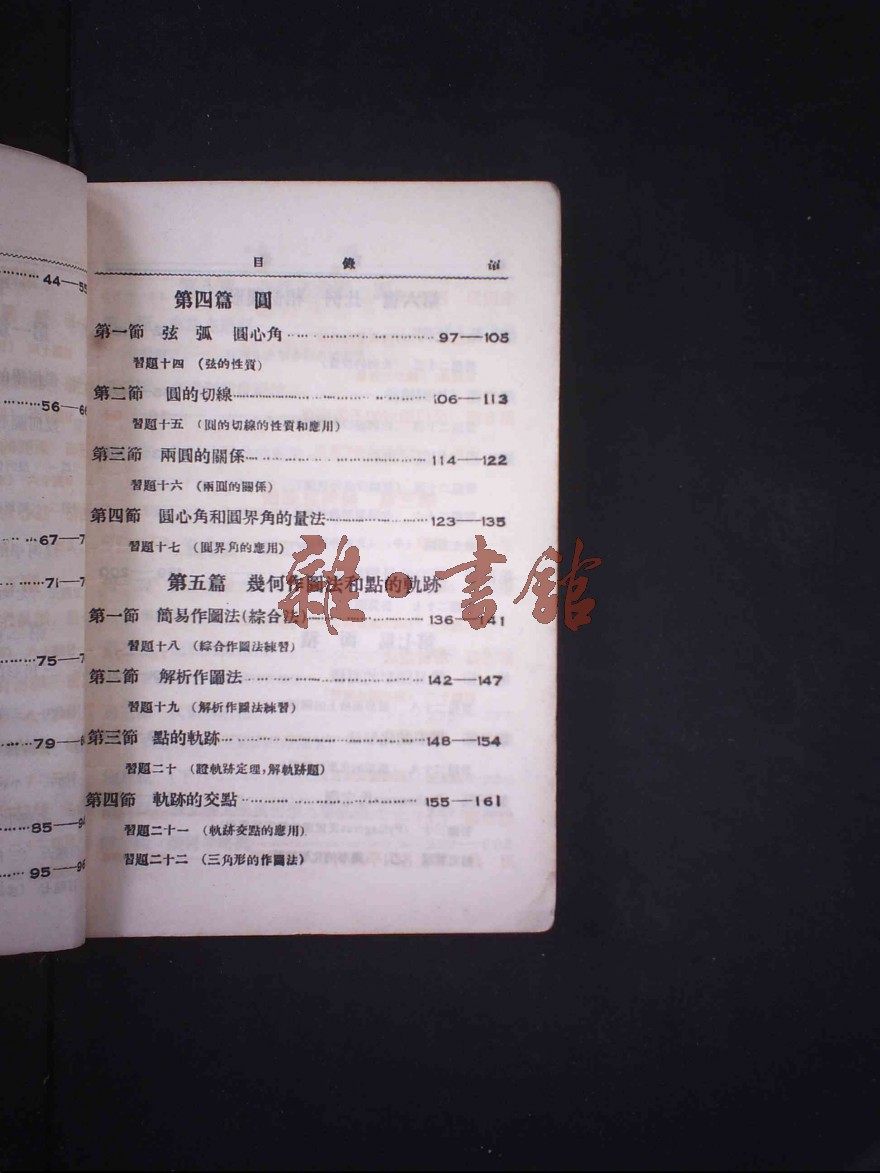 目錄
第四篇 圓
第一節 弦 弧 圓心角 97—105
習題十四 (弦的性質)
第二節 圓的切線 106—113
習題十五 (圓的切線的性質和應用)
第三節 兩圓的關係 114—122
習題十六 (兩圓的關係)
第四節 圓心角和圓界角的量法 123—135
習題十七 (圓界角的應用)
第五篇 幾何作圖法和點的軌跡
第一節 簡易作圖法(綜合法) 136—141
習題十八 (綜合作圖法練習)
第二節 解析作圖法 142—147
習題十九 (解析作圖法練習)
第三節 點的軌跡 148—154
習題二十 (證軌跡定理,解軌跡題)
第四節 軌跡的交點 155—161
習題二十一 (軌跡交點的應用)
習題二十二 (三角形的作圖法)
44—55
56—66
67—7
71—7
75—7
79—
85—
95—
雜·書館